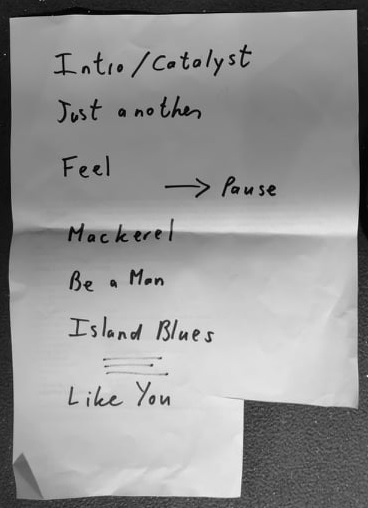 Intro/Catalyst
Just another
Feel
→ Pause
Mackerel
Be a Man
Island Blues
Like You